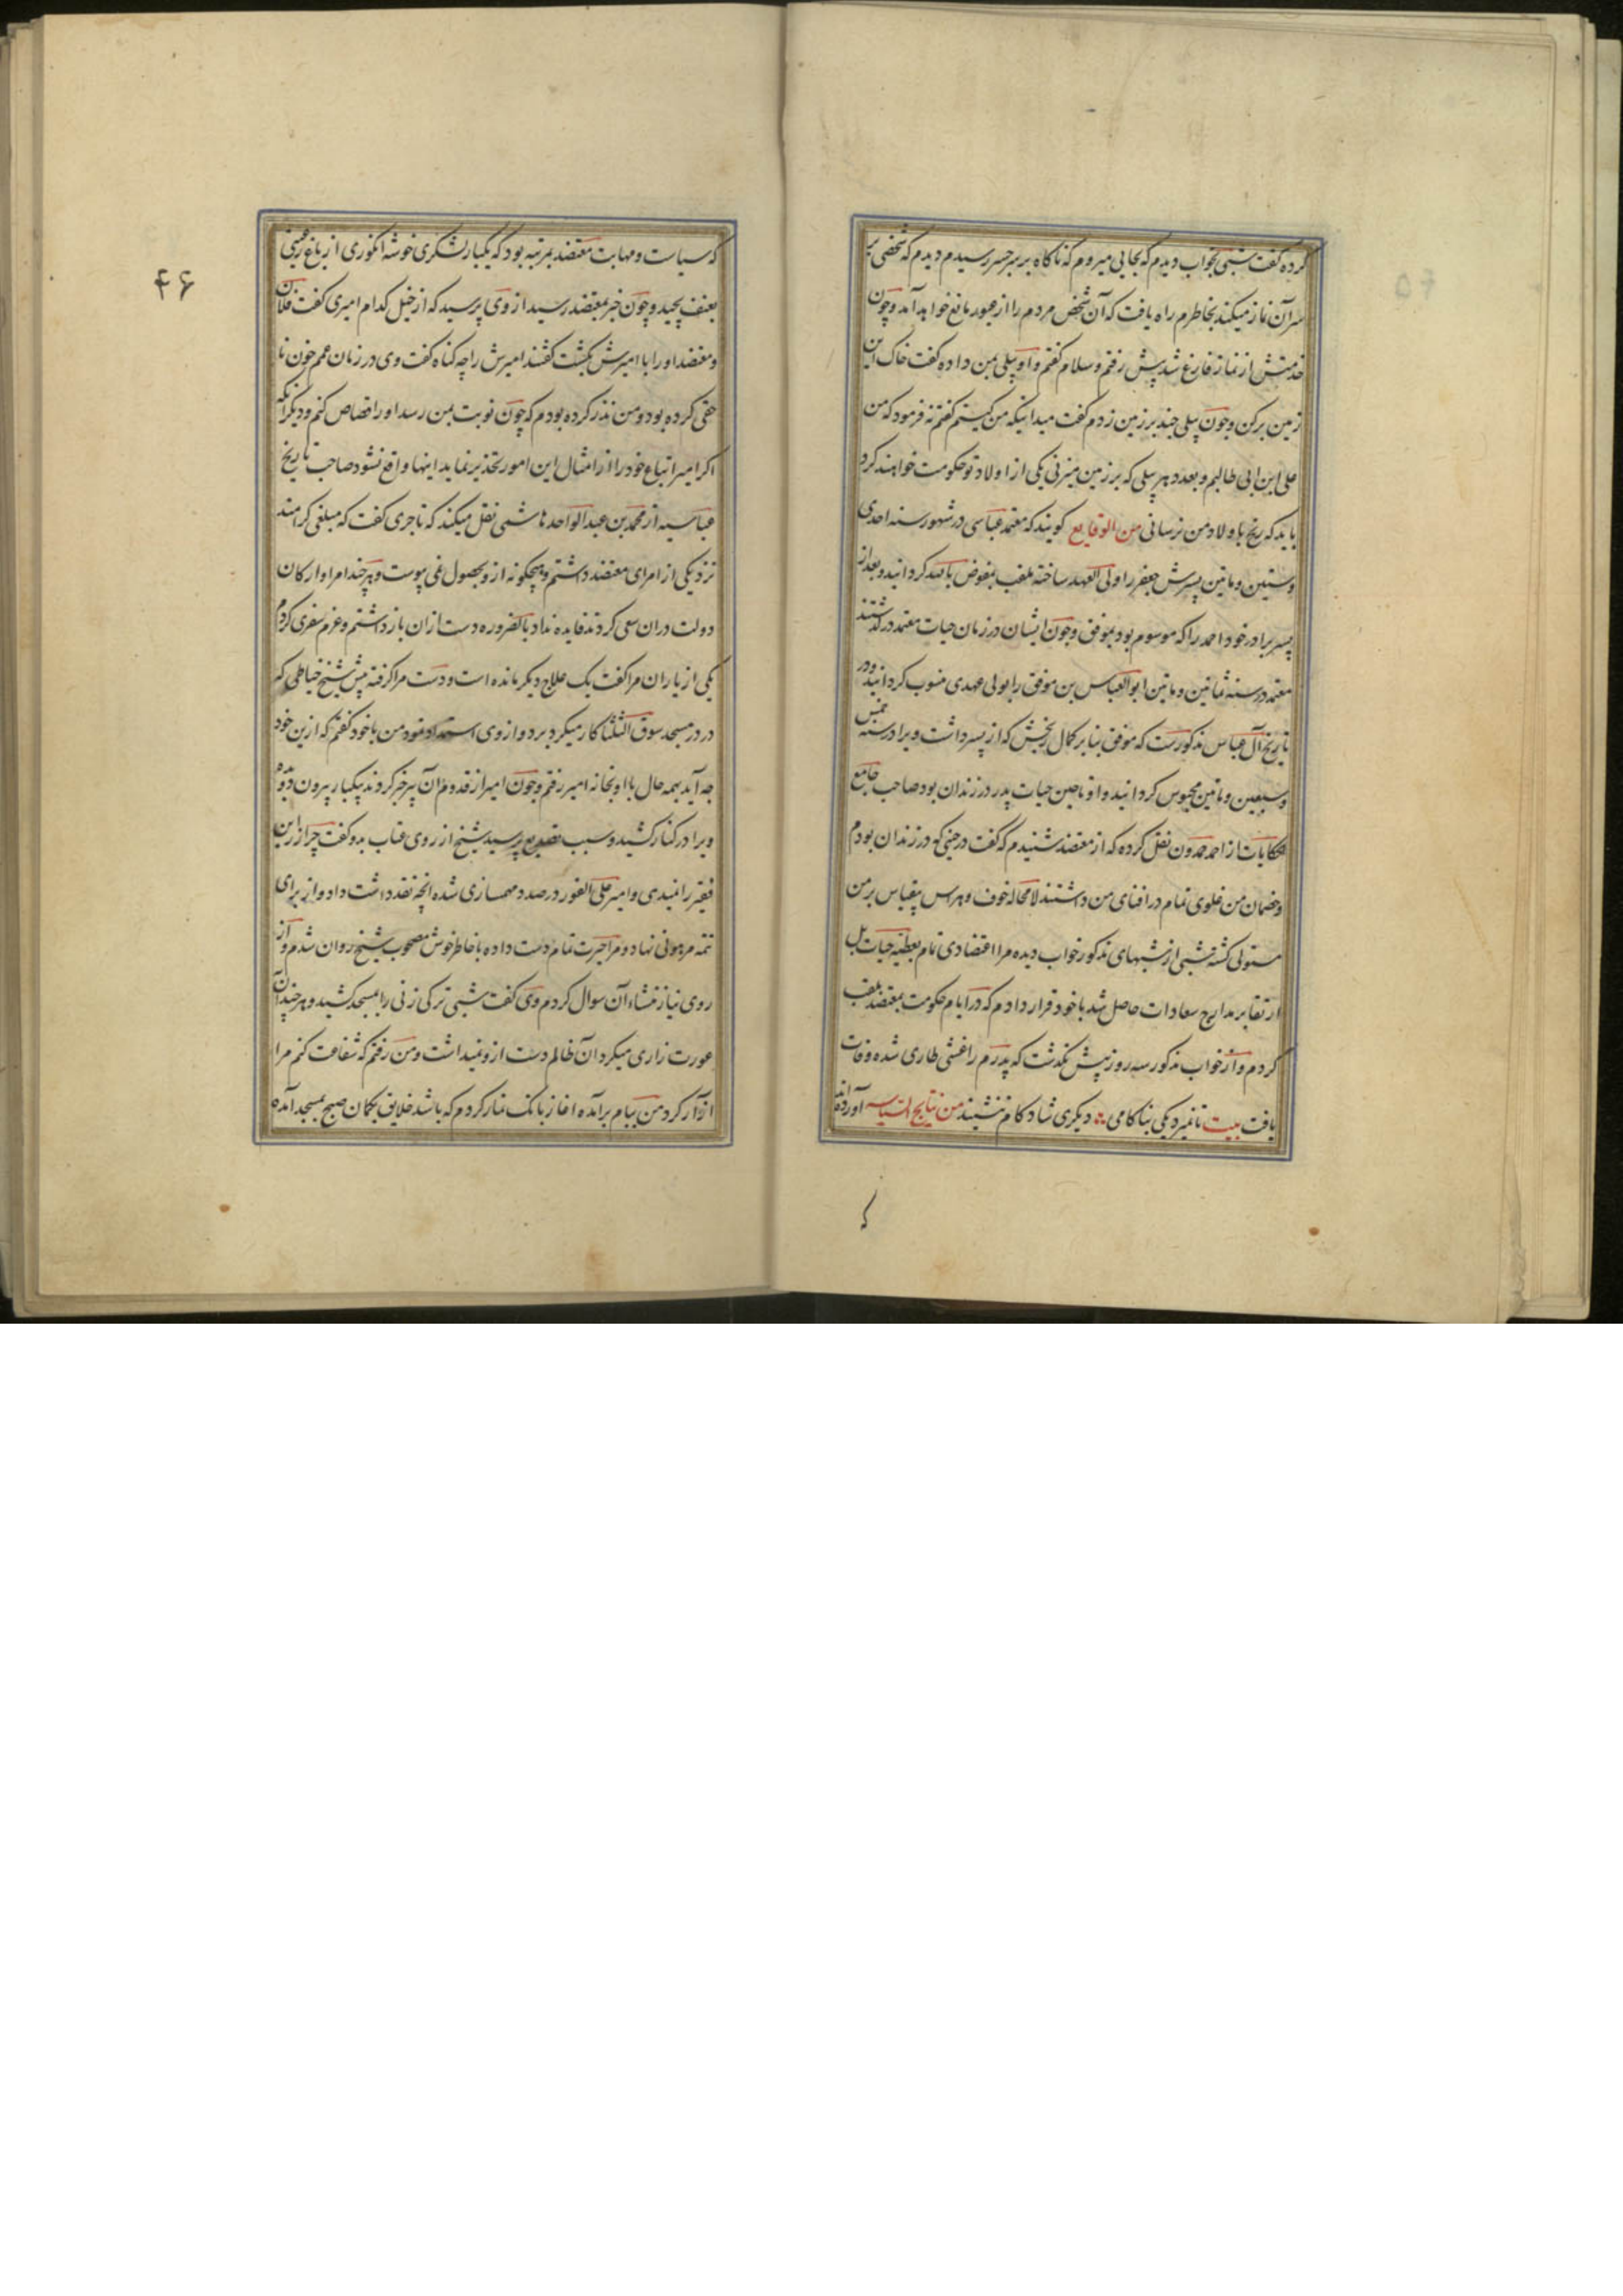 کرده گفت شبی بخواب دیدم که بجایی میروم که ناگاه بر سر جسر رسیدم دیدم که شخصی بر
سر آن نماز میکند بخاطرم راه یافت که آن شخص مردم را از عبور مانع خواهد آمد و چون
خدمتش از نماز فارغ شد پیش رفتم و سلام گفتم و او بیلی بمن داده گفت خاک این
زمین بر کن و چون بیلی چند بر زمین زدم گفت میدانیکه من کیستم گفتم نه فرمود که من
علی ابن ابی طالبم و بعدد هر بیلی که بر زمین میزنی یکی از اولاد تو حکومت خواهند کرد
باید که رنج باولاد من نرسانی من الوقایع گویند که معتمد عباسی در شهور سنه احدی
و ستین و ماتین پسرش جعفر را ولی العهد ساخته ملقب بمفوض بالله گردانید و بعد از
پسر برادر خود احمد را که موسوم بود بموفق و چون ایشان در زمان حیات معتمد درگذشتند
معتمد در سنه ثمانین و ماتین ابو العباس بن موفق را بولی عهدی منسوب گردانید و در
تاریخ آل عباس مذکورست که موفق بنا بر کمال رنجش که از پسر داشت ویرا در سنه خمس
و سبعین و ماتین محبوس گردانید و او تا حین حیات پدر در زندان بود صاحب جامع
الحکایات از احمد حمدون نقل کرده که از معتضد شنیدم که گفت در حینی که در زندان بودم
و خصمان من غلوی تمام در افنای من داشتند لامحاله خوف و هراس بیقیاس بر من
مستولی گشته شبی از شبهای مذکور خواب دیده مرا اعتضادی تمام بعطیه حیات بل
ارتقا بر مدارج سعادات حاصل شد با خود قرار دادم که در ایام حکومت بمعتضد ملقب
کردم و از خواب مذکور سه روز بیش نگذشت که پدرم را غشی طاری شده وفات
یافت بیت تا نمیرد یکی بناکامی دیگری شادکام ننشیند من نتایج السیاسه آورده‌اند
که
۴۶
که سیاست و مهابت معتضد بمرتبه بود که یکبار لشکری خوشه انگوری از باغ رعیتی
بعنف بچید و چون خبر بمعتضد رسید از وی پرسید که از خیل کدام امیری گفت فلان
و معتضد او را با امیرش بکشت گفتند امیرش را چه گناه گفت وی در زمان عمم خون نا
حقی کرده بود و من نذر کرده بودم که چون نوبت بمن رسد او را قصاص کنم و دیگر آنکه
اگر امیر اتباع خود را از امثال این امور تحذیر نماید اینها واقع نشود صاحب تاریخ
عباسیه از محمد بن عبد الواحد هاشمی نقل میکند که تاجری گفت که مبلغی گرامند
نزد یکی از امرای معتضد داشتم و هیچگونه ازو بحصول نمی پیوست و هر چند امرا و ارکان
دولت دران سعی کردند فایده نداد بالضروره دست ازان بازداشتم و عزم سفری کردم
یکی از یاران مرا گفت یک علاج دیگر مانده است و دست مرا گرفته پیش شیخ خیاطی که
در در مسجد سوق الثلثا کار میکرد برد و از وی استمداد نمود من با خود گفتم که ازین خود
چه آید بهمه حال با او بخانه امیر رفتم و چون امیر از قدوم آن پیر خبر کردند بیکبار بیرون دویده
ویرا در کنار کشید و سبب تصدیع پرسید شیخ از روی عتاب بدو گفت چرا زر این
فقیر را نمیدی و امیر علی الفور درصدد مهمسازی شده انچه نقد داشت داد و از برای
تتمه مرهونی نهاد و مرا حیرت تمام دست داده با خاطر خوش مصحوب شیخ روان شدم و از
روی نیاز منشاء آن سوال کردم وی گفت شبی ترکی زنی را بمسجد کشید و هر چند آن
عورت زاری میکرد آن ظالم دست ازو نمیداشت و من رفتم که شفاعت کنم مرا
ازار کرد من ببام برآمده اغاز بانک نماز کردم که باشد خلایق بگمان صبح بمسجد آمده